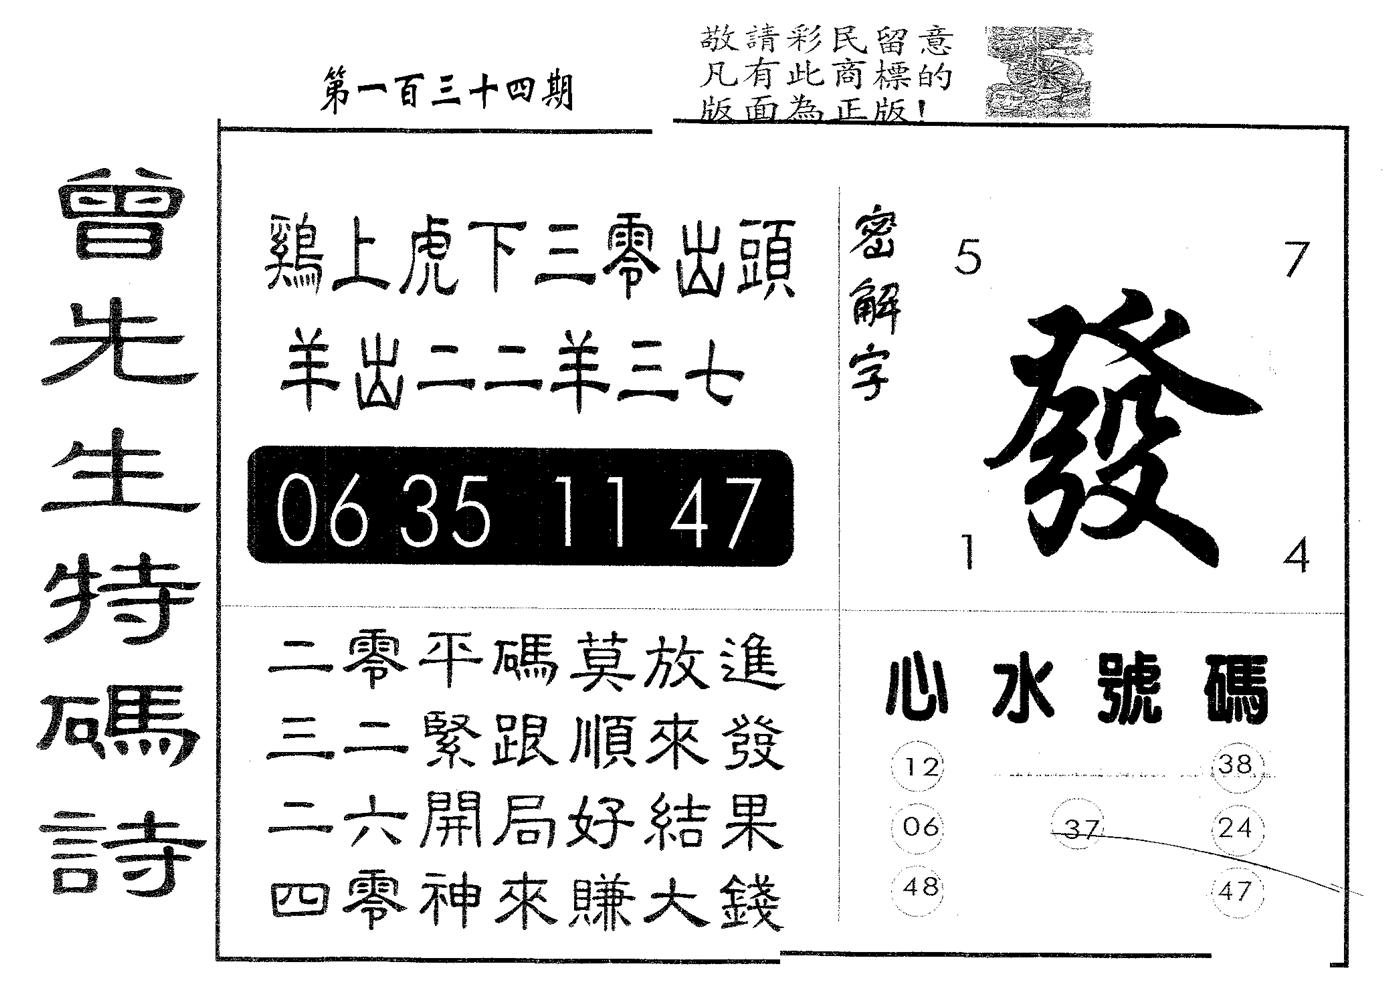 第一百三十四期
敬請彩民留意
凡有此商標的
版面為正版!
曾先生特碼詩
鷄上虎下三零出頭
羊出二二羊三七
06 35 11 47
密解字
5 7
發
1 4
二零平碼莫放進
三二緊跟順來發
二六開局好結果
四零神來賺大錢
心水號碼
12 38
06 37 24
48 47